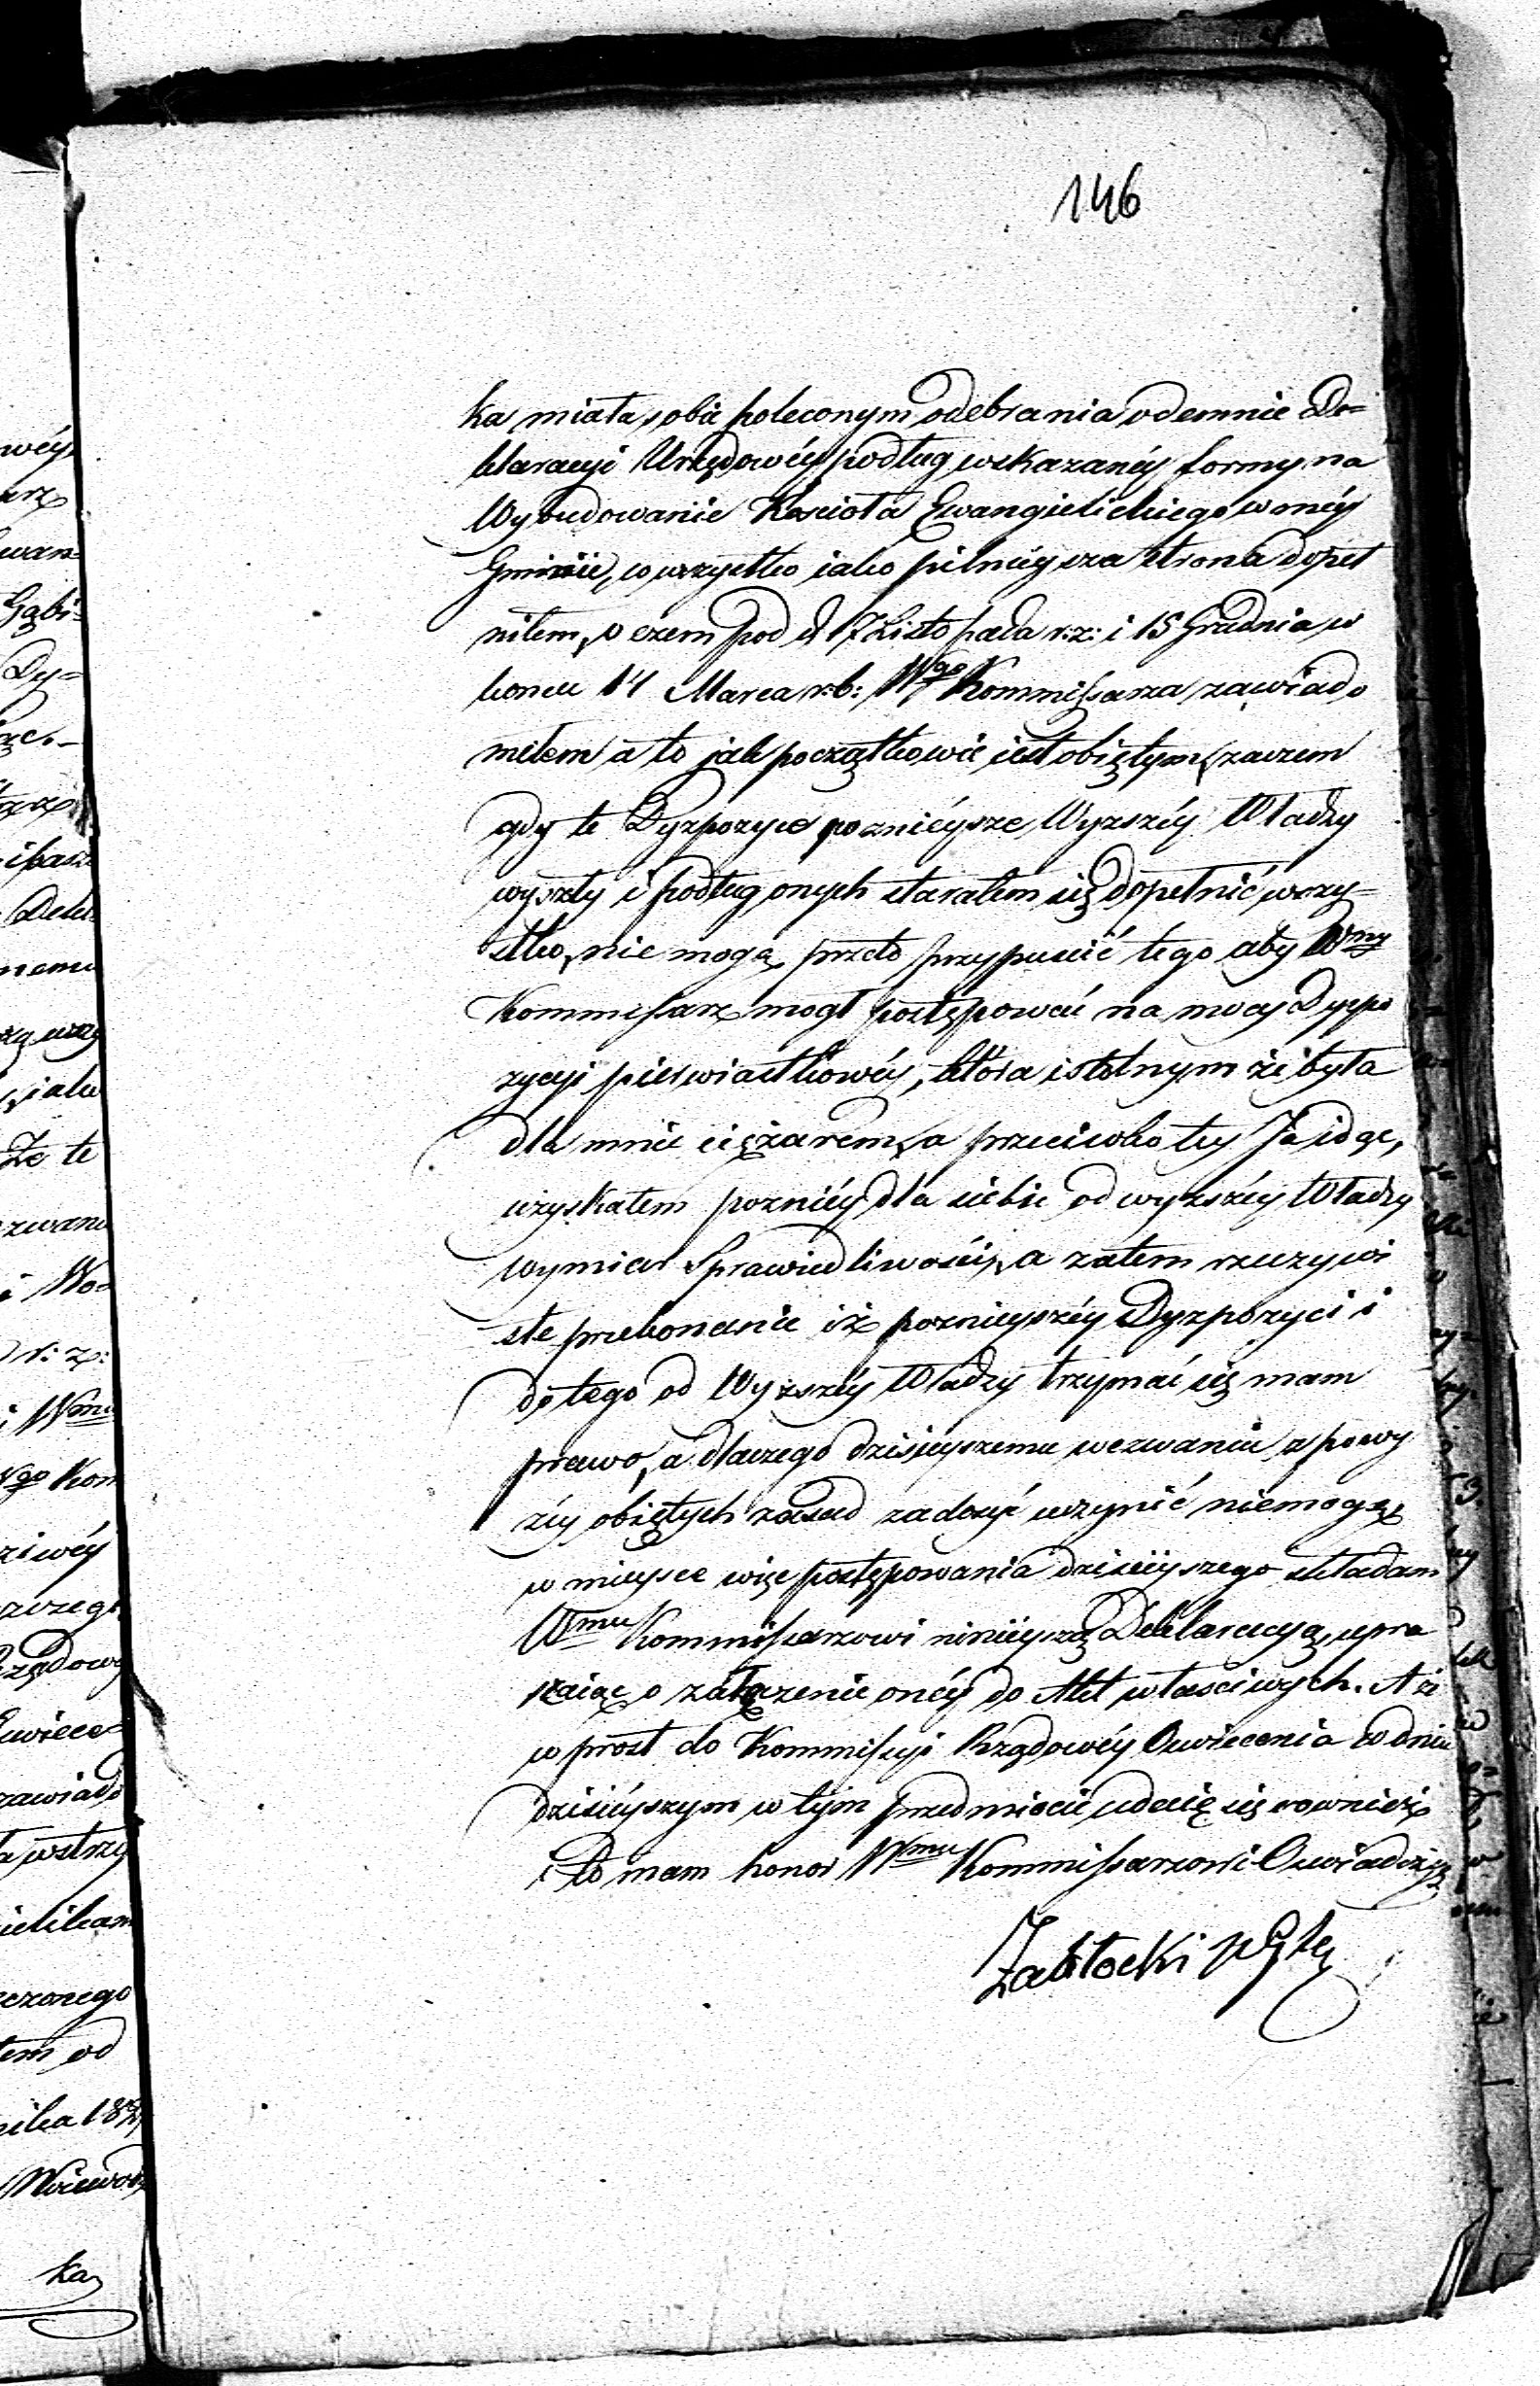 146
ka miała sobie poleconym odebrania odemnie De=
klaracyi Urzędowéy podług wskazanéy formy na
Wybudowanie Kościoła Ewangielickiego w méy
Gminie, co wszystko iako pilnieysza strona dopeł
niłem, o czem pod d. 17 Listopada r: z: i 15 Grudnia w
koncu 14 Marca r: b: Wgo Kommissarza zawiado
miłem a to jak początkowie iest obiętym, zaczem
gdy te Dyzpozycie poznieysze Wyzszéy Władzy
wyszły i podług onych starałem się dopełnić wszy=
stko, nie mogę przeto przypuścić tego aby Wmy
Kommissarz mogł postępować na mocy Dyzpo
zycyi pierwiastkowéy, która istotnym że była
dla mnie ciężarem, a przeciwko tey Ja idąc,
uzyskałem poźniéy dla siebie od wyzszéy Władzy
wymiar Sprawiedliwości, a zatem rzeczywi
ste przekonanie iż poznieyszéy Dyzpozycii i
do tego od Wyzszéy Władzy trzymać się mam
prawo, a dlaczego dzisieyszemu wezwaniu z powy
żéy obiętych zasad zadosyć uczynić niemogąc
w mieysce więc postępowania dzisieyszego składam
Wmu Kommissarzowi ninieyszą Deklaracyą, upra
szaiąc o załączenie onéy do Akt właściwych. A że
w prost do Kommissyi Rządowéy Oswiecenia w dniu
dzisieyszym w tym przedmiocie udaię się rownież
i to mam honor Wmu Kommissarzowi Oswiadczyć
Zabłocki
wéy
wan=
Gąbi=
Dy=
nemu
Że te
i Wo=
r: z:
i Wmu
Wgo Kom
ziwéy
zawiado
czonego
tem od
Woiewodz
ka